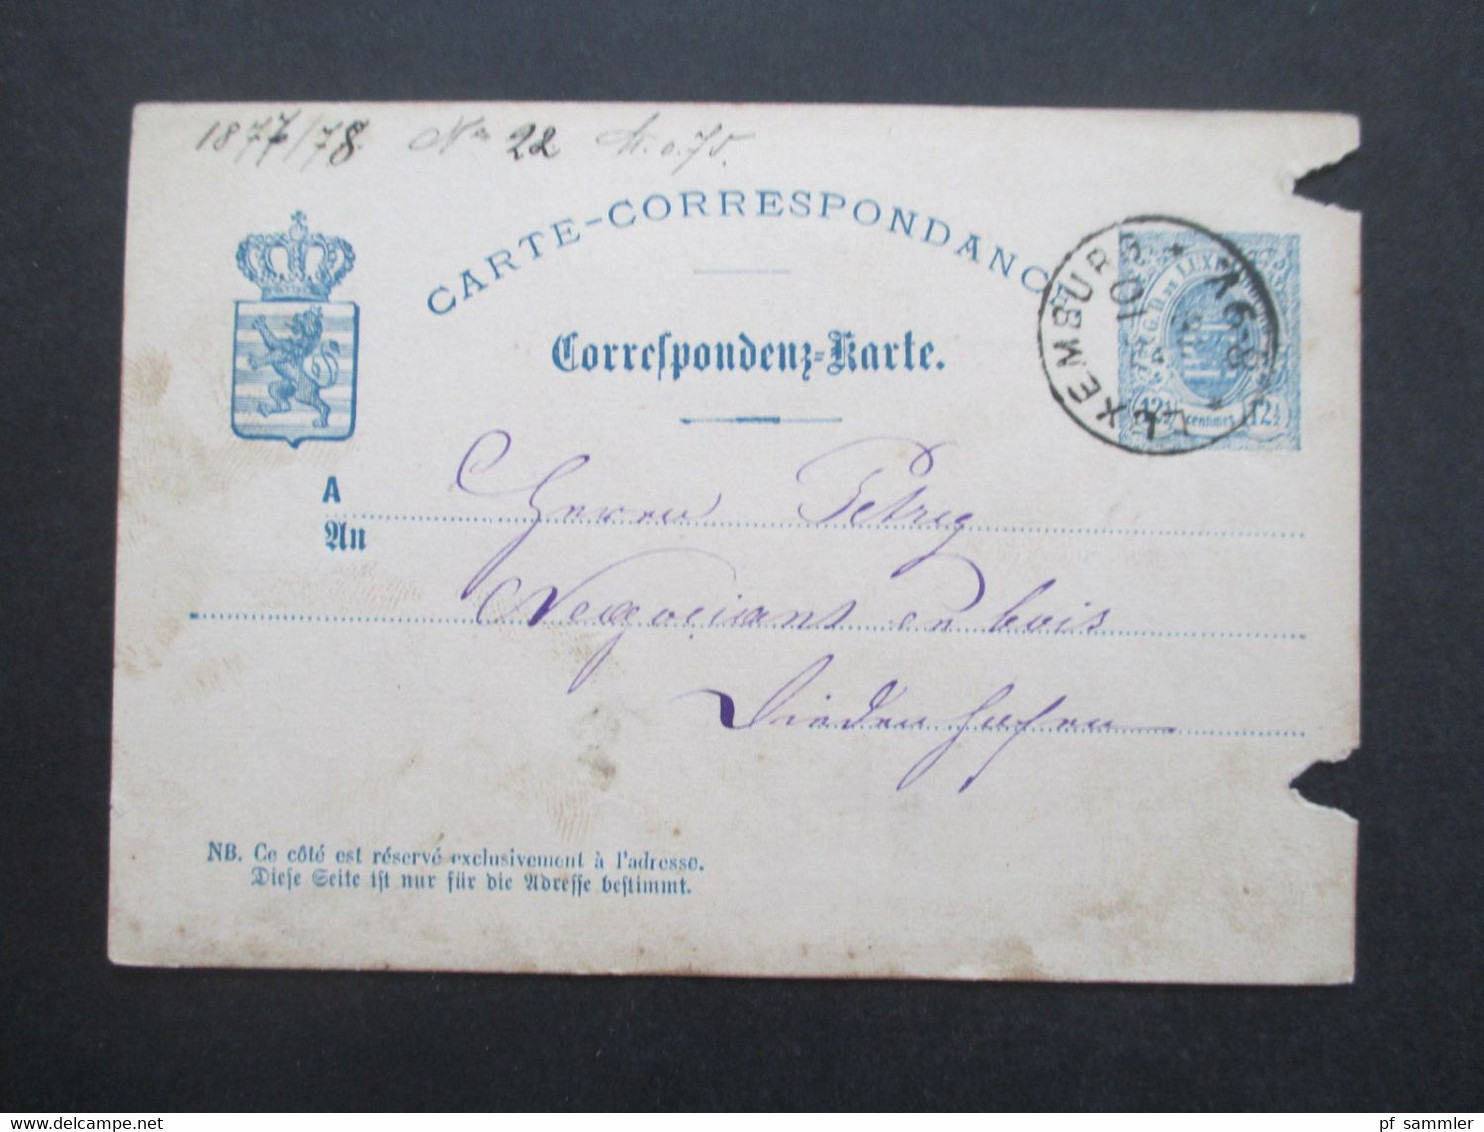 1877/78. No 22 M. 0.70.
CARTE-CORRESPONDANCE
Correspondenz-Karte.
LUXEMBOURG
G. D. DE LUX
12½ centimes 12½
A
An
Herrn Petry
Negociant en bois
Diedenhofen
NB. Ce côté est réservé exclusivement à l'adresse.
Diese Seite ist nur für die Adresse bestimmt.
pf_sammler